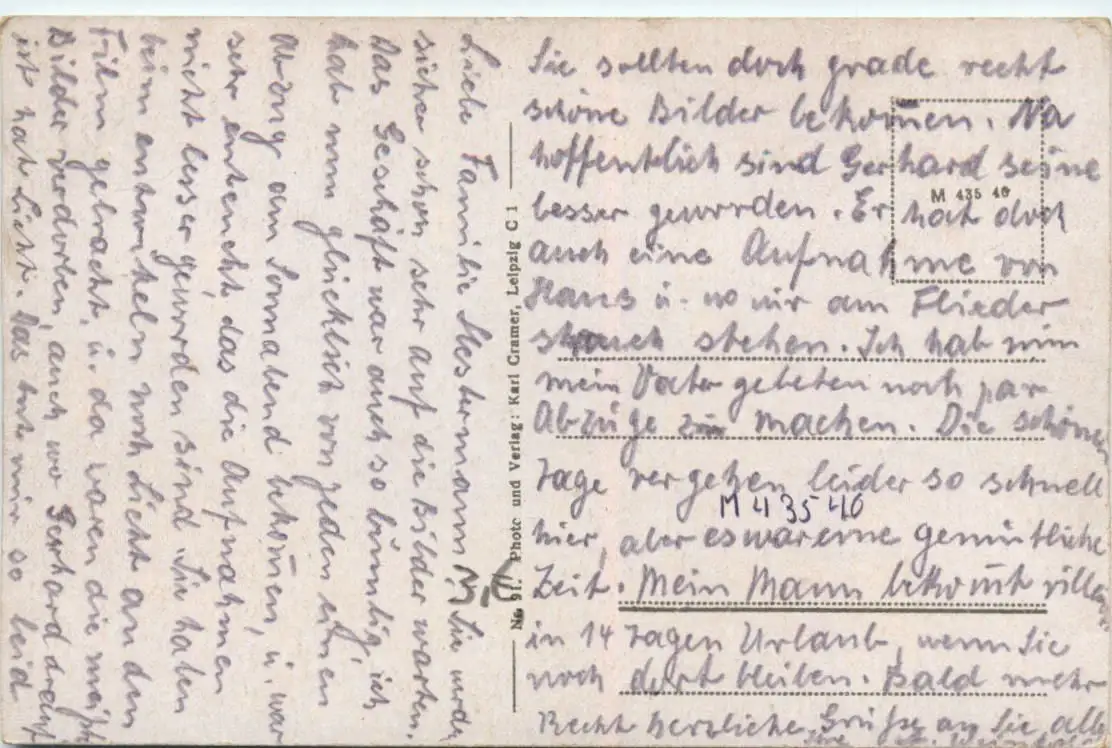 Liebe Familie Stestermann, Sie werden
sicher schon sehr auf die Bilder warten.
Das Geschäft war auch so bummlig, ich
hab nun glücklich von jeden einen
Abzug am Sonnabend bekom̄en, u. war
sehr enteucht, das die Aufnahmen
nicht besser geworden sind. Sie haben
beim entwickeln noch Licht an den
Film gebracht, u. da waren die meißt
Bilder verdorben, auch wo Gerhard drauf
ist hat Licht. Das tut mir so leid
Sie sollten doch grade recht
schöne Bilder bekom̄en. Na
hoffentlich sind Gerhard seine
besser geworden. Er hat doch
auch eine Aufnahme von
Haus u. wo wir am Flieder
strauch stehen. Ich hab nun
mein Vater gebeten noch par
Abzüge zu machen. Die schönen
Tage vergehen leider so schnell
hier, aber es war eine gemütliche
Zeit. Mein Mann bekom̄t
in 14 Tagen Urlaub, wenn Sie
noch dort bleiben. Bald mehr
Recht herzliche Grüße an Sie alle
M 435 40
M 43540
3,-
Photo und Verlag: Karl Cramer, Leipzig C 1